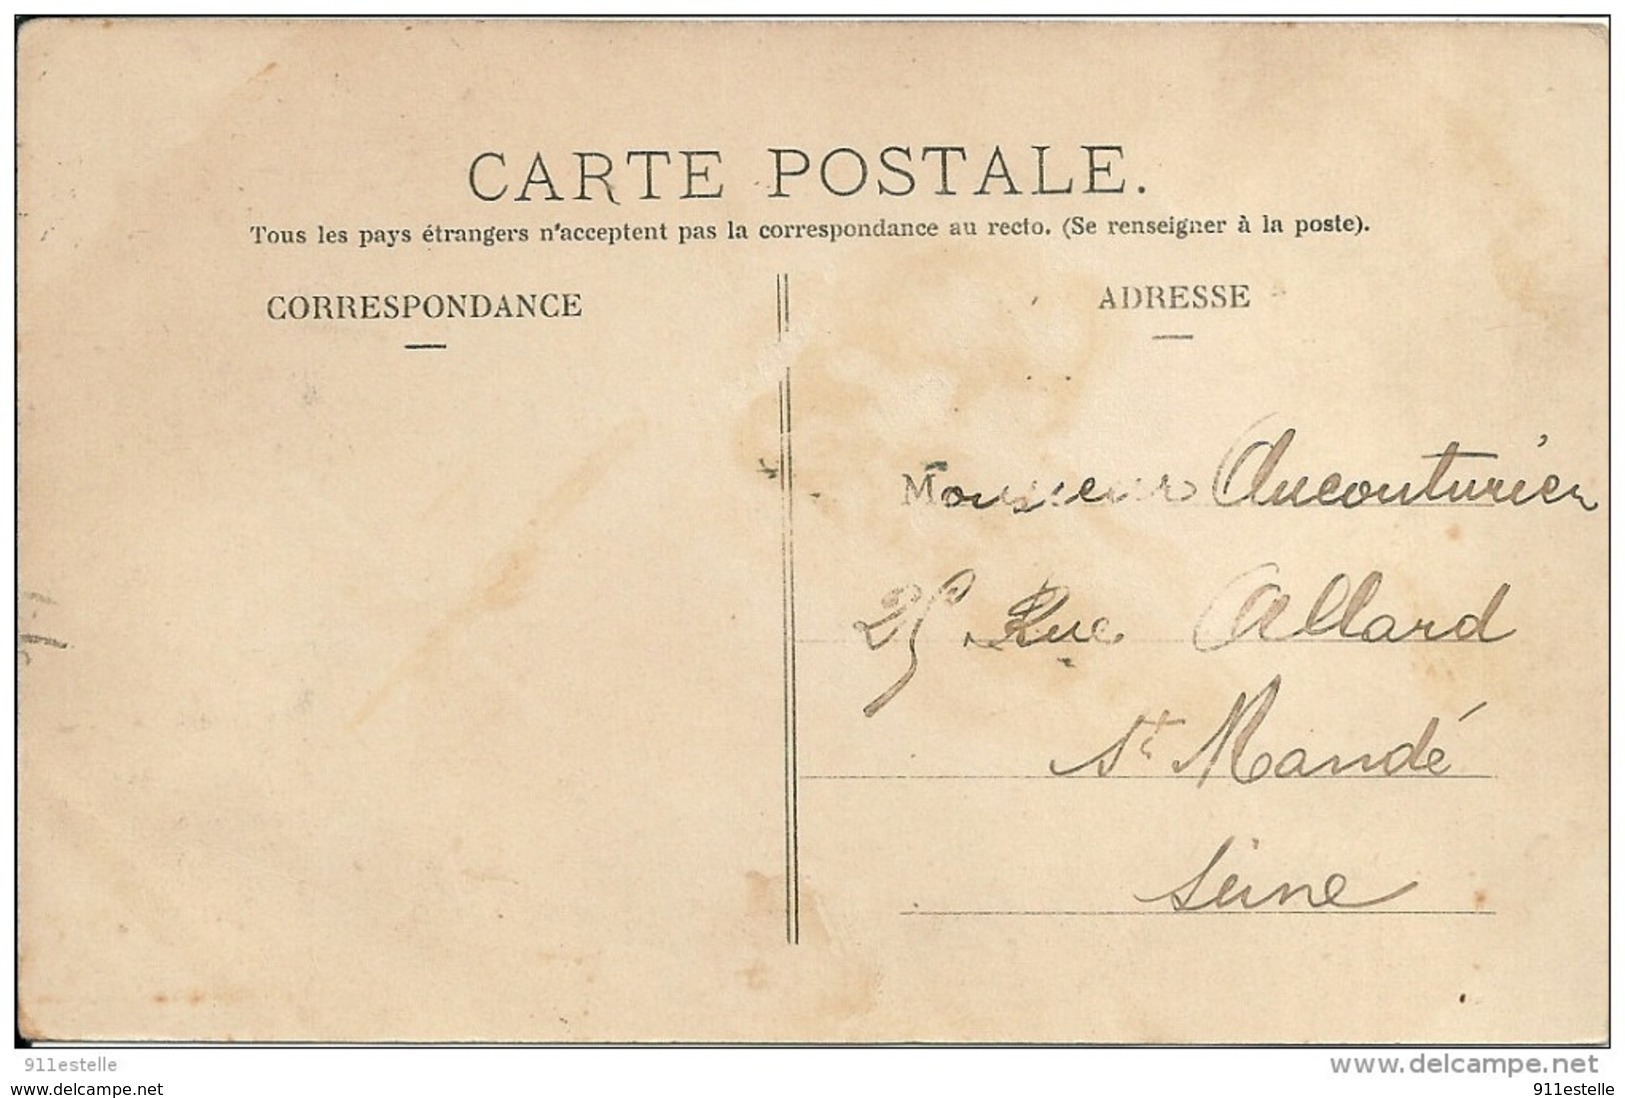 CARTE POSTALE.
Tous les pays étrangers n'acceptent pas la correspondance au recto. (Se renseigner à la poste).
CORRESPONDANCE
ADRESSE
Monsieur Aucouturier
25 Rue Allard
St Mandé
Seine
911estelle
www.delcampe.net
www.delcampe.com
911estelle